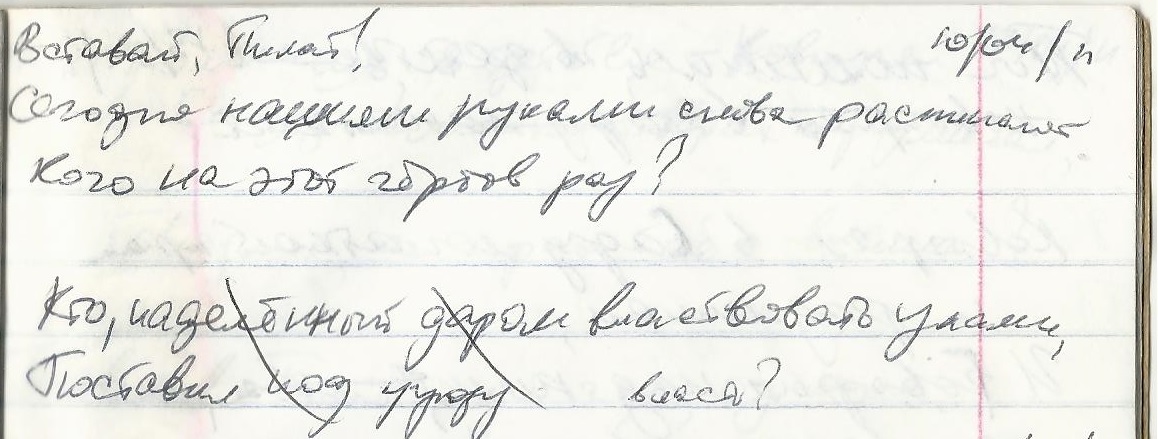 Вставай, Пилат! 10/04/11
Сегодня нашими руками снова распинают
Кого на этот чёртов раз?
Кто, наделённый даром властвовать умами,
Поставил под угрозу власть?